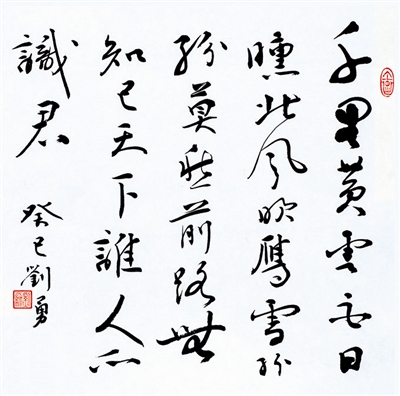 千里黄雲白日
曛北風吹鴈雪紛
紛莫愁前路無
知己天下誰人不
識君
癸巳劉勇